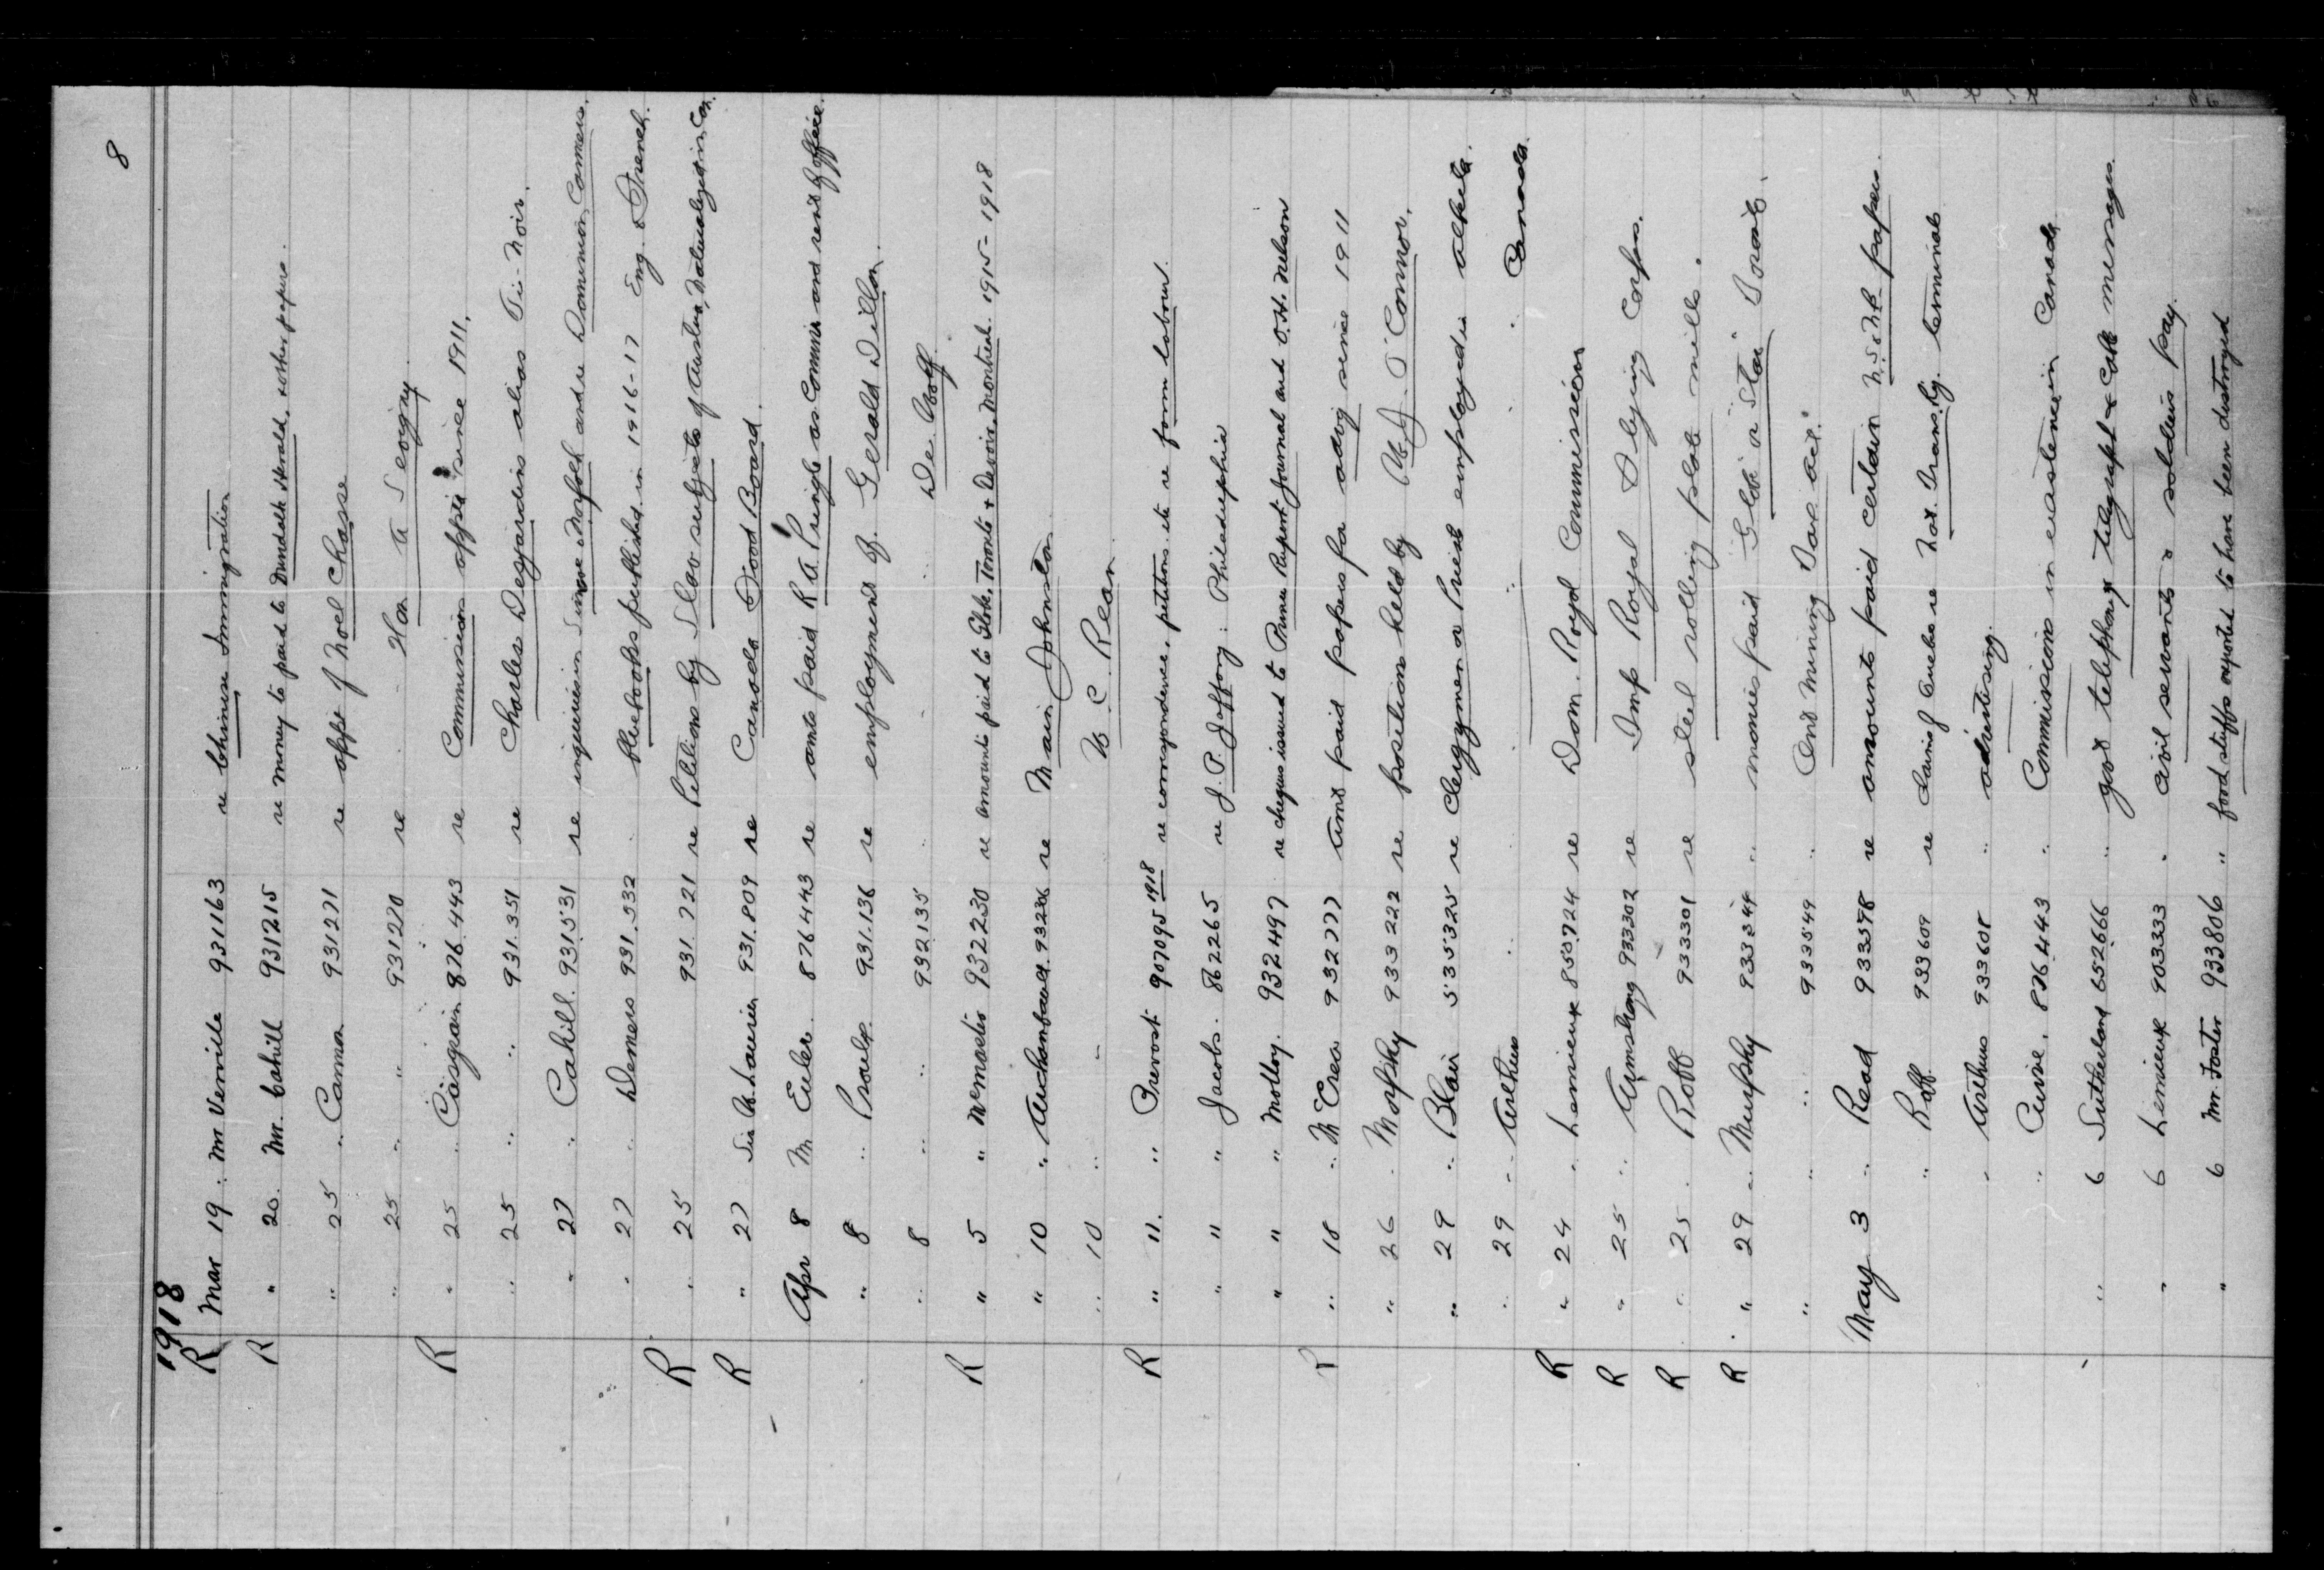 8
1918
R Mar 19 " Mr Verville 931163 re Chinese Immigration
R " 20 Mr. Cahill 931215 re money to paid to Dundalk Herald, & other papers.
" 25 " Cannon 931271 re appt of Noel Chasse
" 25 " " 931270 re " Hon A Sevigny
R " 25 " Casgrain 876.443 re Commission appts since 1911.
" 25 " " 931.351 re Charles Desjardins alias Ti-Noir.
" 27 " Cahill 931531 re inquiries in Simcoe & Norfolk and re Dominion Canners.
" 27 " Demers 931.532 " bluebooks published in 1916-17 Eng. & French.
R " 25 931.721 re Petitions by Slav subjects of Austria, Naturalized in Can.
R " 27 Sir W. Laurier 931.809 re Canada Food Board.
Apr 8 M Euler 876443 re amts paid R A Pringle as Commis and rent of office.
" 8 " Proulx 931.136 re employment of Gerald Dillon
" 8 " " 932135 " " " De Wolf
R " 5 " McMaster 932230 re amounts paid to Globe, Toronto & Devoir, Montreal. 1915-1918
" 10 " Archambault 932236 re Main Johnston
" 10 " " W. C. Rean
R " 11. " Prevost 907095 1918 re correspondence, petitions etc re farm labour.
" " " Jacobs. 862265 re J. P. Jaffray: Philadelphia
" " " Molloy. 932497 re cheques issued to Prince Rupert Journal and O.H. Nelson
R " 18 " McCrea 932777 amt paid papers for advtg since 1911
" 26 " Morphy 933222 re position held by W. J. O'Connor.
" 29 " Blair 535325 re Clergymen or Priests employed in Alberta.
" 29 " Arthurs " " " " Canada.
R " 24 " Lemieux 850724 re Dom. Royal Commission
R " 25 " Armstrong 933302 re Imp Royal Flying Corps.
R " 25 " Robb 933301 re steel rolling plate mills.
R " 29 " Murphy 933544 " monies paid "Globe" or "Star" Toronto.
" " " 933549 " Ont Mining Tax act.
May 3 " Read 933598 re amounts paid certain N.S. & N.B. papers.
" Robb 933609 re Claims of Quebec re Nat. Trans. Ry. terminals
" Arthurs 933608 " advertising.
" Currie. 876443 " Commissions in existence in Canada
" 6 Sutherland 652666 " govt telephone telegraph & cable messages.
" 6 Lemieux 903333 " civil servants & soldiers pay.
" 6 Mr. Foster 933806 " food stuffs reported to have been destroyed